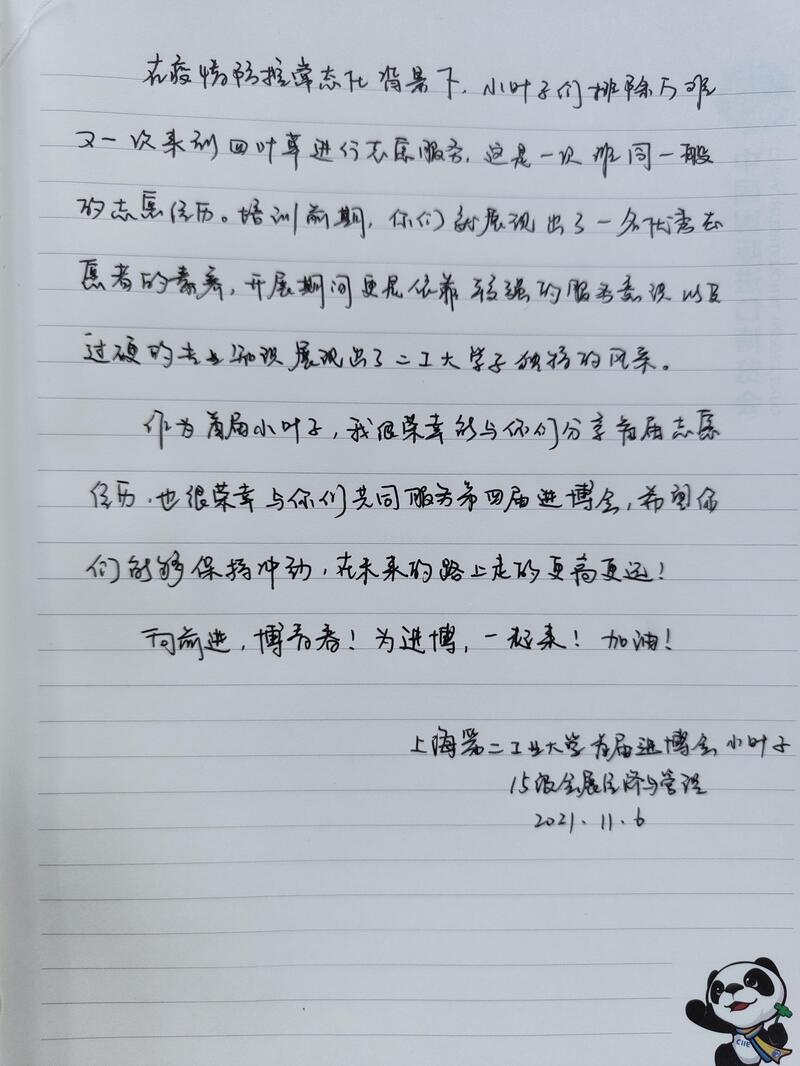 在疫情防控常态化背景下，小叶子们排除万难
又一次来到四叶草进行志愿服务，这是一次非同一般
的志愿经历。培训前期，你们就展现出了一名优秀志
愿者的素养，开展期间更是依靠较强的服务意识以及
过硬的专业知识展现出了二工大学子独特的风采。
作为首届小叶子，我很荣幸能与你们分享首届志愿
经历，也很荣幸与你们共同服务第四届进博会，希望你
们能够保持冲劲，在未来的路上走的更高更远！
向前进，博青春！为进博，一起来！加油！
上海第二工业大学首届进博会小叶子
15级会展经济与管理
2021.11.6
CIIE
中国国际进口博览会